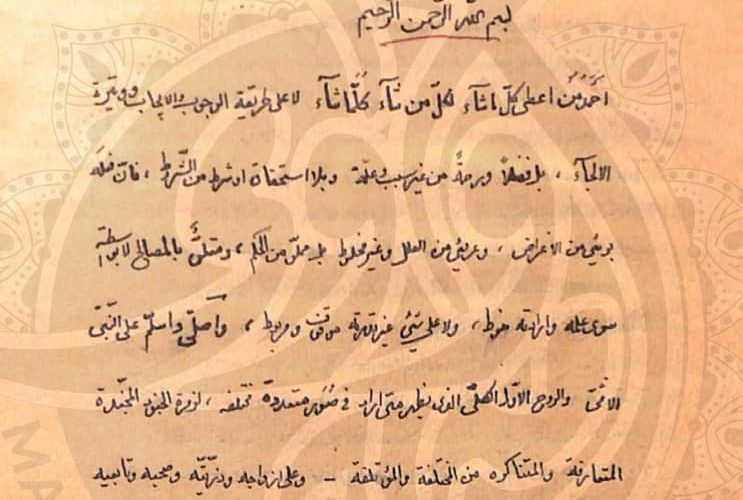 بسم الله الرحمن الرحيم
أحمد من اعطى كلّ ماشآء لكلّ من شآء كلّما شآء لا على طريقة الوجوب والايجاب ووتيرة
الالجآء ، بل فضلاً ورحمةً من غير سبب وعلّة وبلا استحقاق او شرط من الشّروط ، فانّ فعله
بريئ من الاغراض ، وعريّ من العلل وغير مخلوط بل مملوّ من الحكم ، ومتلقًّ بالمصالح لا بواسطة
سوى علمه وارادته منوط ، ولا على شيئ غير قدرته موقوف ومربوط ، وأصلّى واسلّم على النّبىّ
الامّىّ والروح الاوّل الكلّىّ الذى يظهر متى اراد فى صُوَر متعدّدة مختلفه ، لزمرة الجنود المجنّدة
المتعارفة والمتناكره من المختلفة والمؤتلفة - وعلى ازواجه وذرّيّته وصحبه وتابعيه
MA